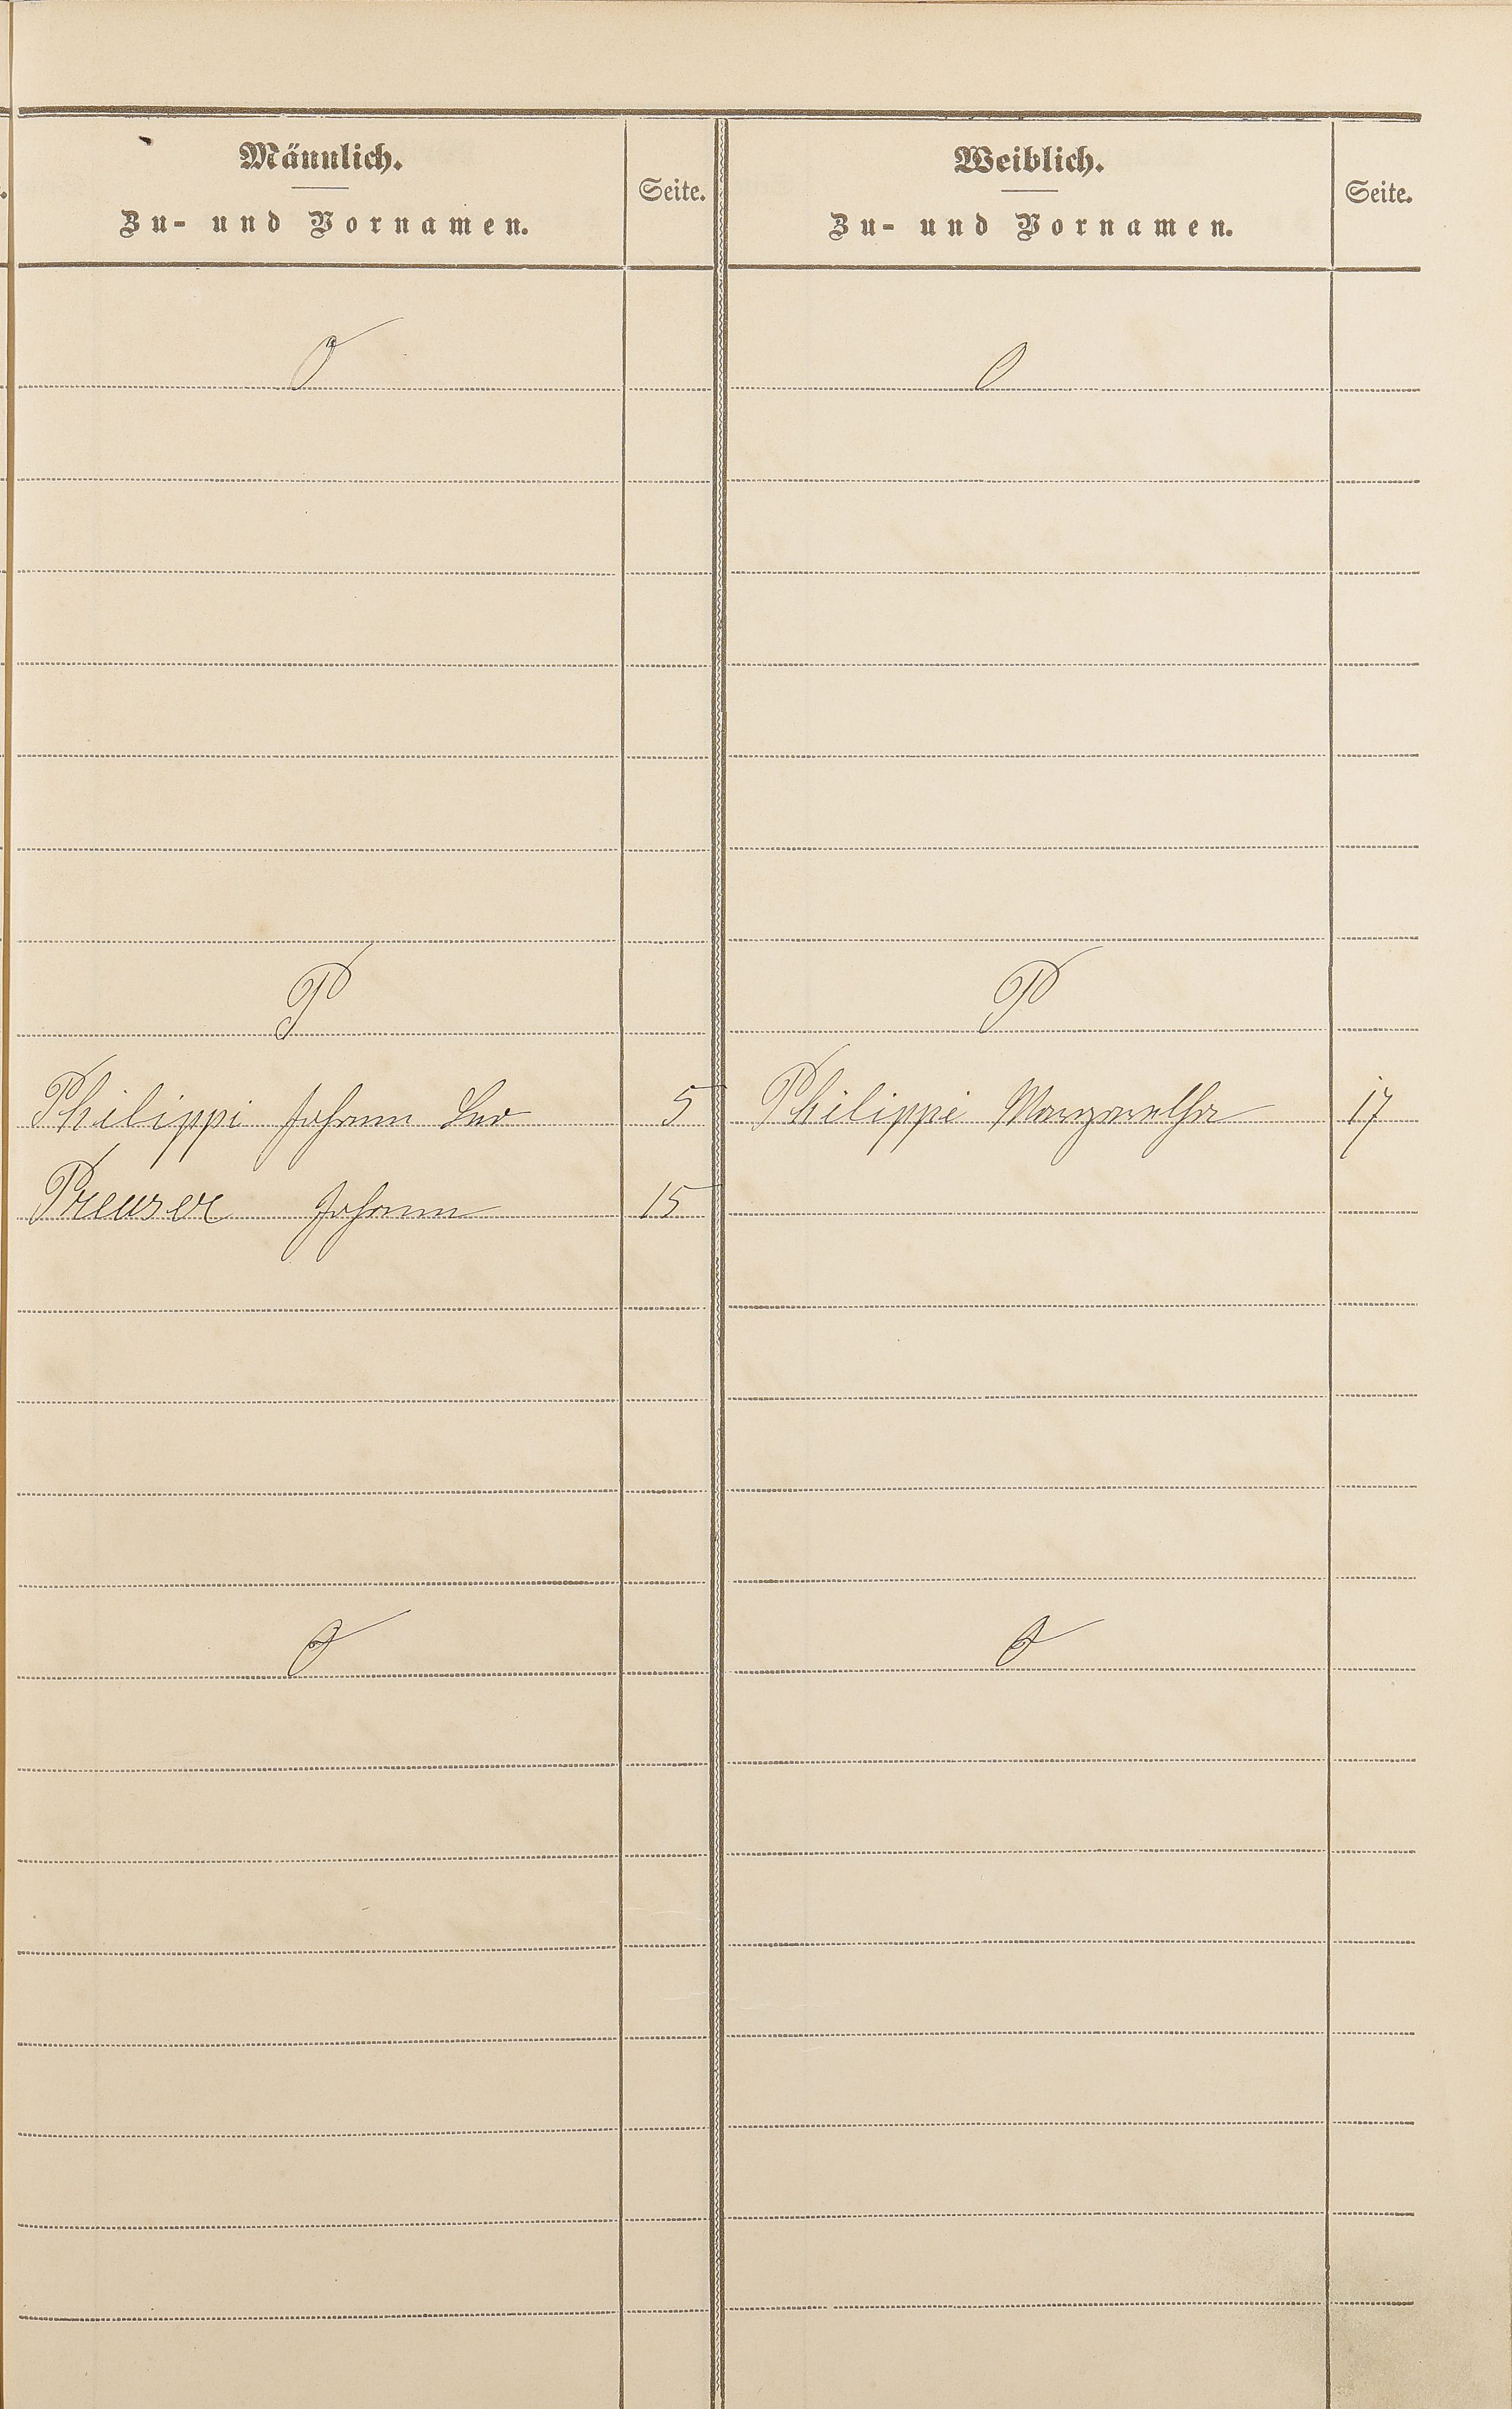 Männlich.
Zu- und Vornamen.
Seite.
Weiblich.
Zu- und Vornamen.
Seite.
O
O
P
P
Philippi Johann Leo 5 Philippi Margaretha 17
Preuser Johann 15
Q
Q